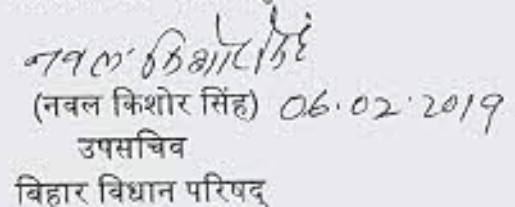 नवल किशोर सिंह
(नवल किशोर सिंह) 06.02.2019
उपसचिव
बिहार विधान परिषद्